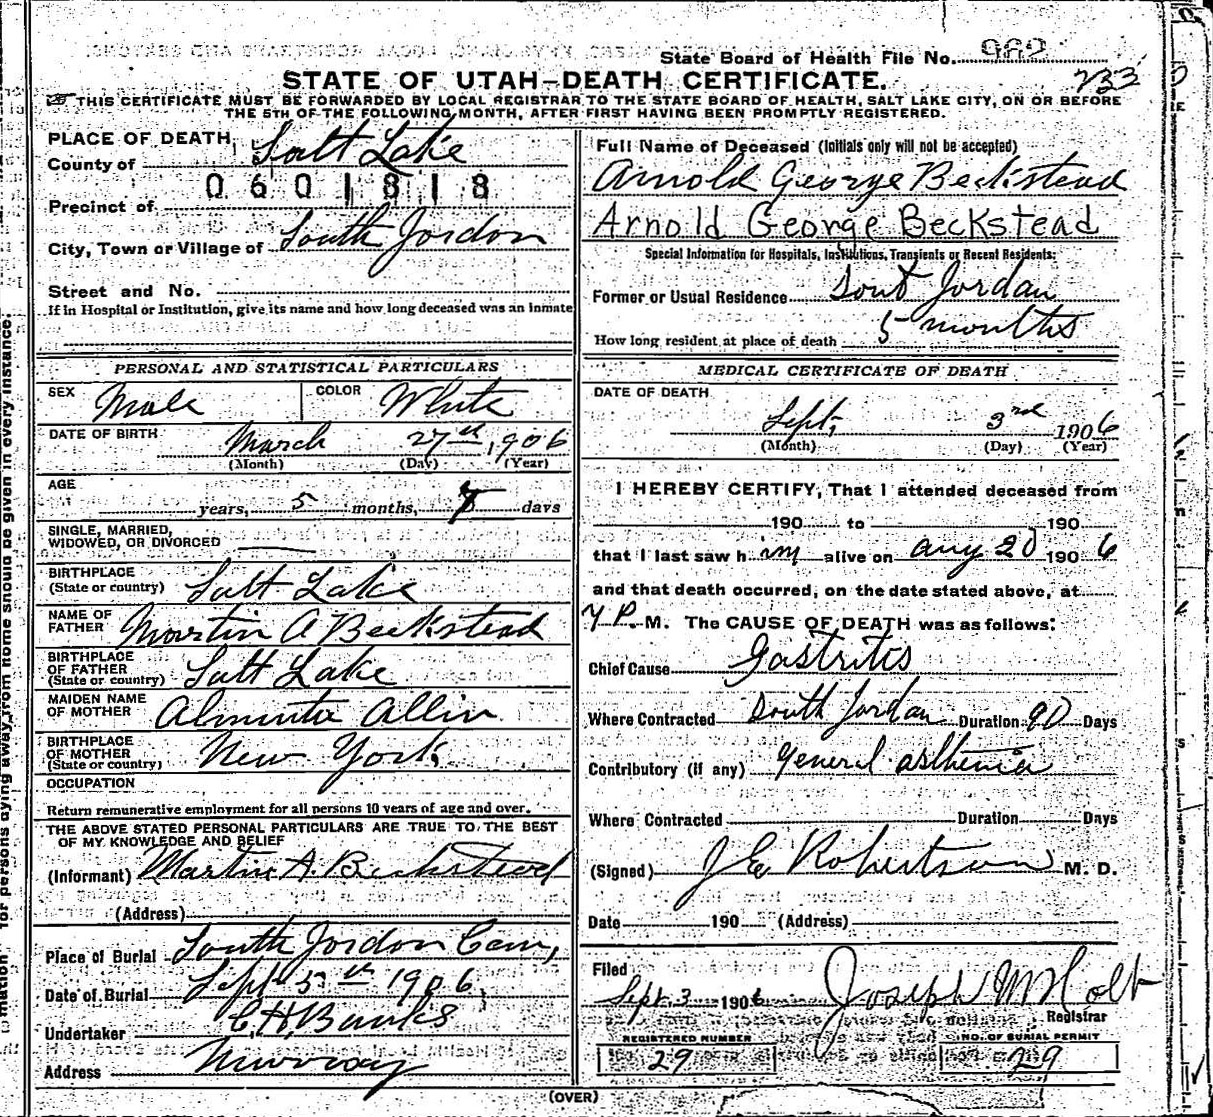 State Board of Health File No. 982
233
STATE OF UTAH—DEATH CERTIFICATE.
THIS CERTIFICATE MUST BE FORWARDED BY LOCAL REGISTRAR TO THE STATE BOARD OF HEALTH, SALT LAKE CITY, ON OR BEFORE
THE 5TH OF THE FOLLOWING MONTH, AFTER FIRST HAVING BEEN PROMPTLY REGISTERED.
PLACE OF DEATH,
County of Salt Lake
0601818
Precinct of
City, Town or Village of South Jordon
Street and No.
If in Hospital or Institution, give its name and how long deceased was an inmate
PERSONAL AND STATISTICAL PARTICULARS
SEX Male COLOR White
DATE OF BIRTH March 27th, 1906
(Month) (Day) (Year)
AGE
years, 5 months, 7 days
SINGLE, MARRIED,
WIDOWED, OR DIVORCED
BIRTHPLACE
(State or country) Salt Lake
NAME OF
FATHER Martin A Beckstead
BIRTHPLACE
OF FATHER
(State or country) Salt Lake
MAIDEN NAME
OF MOTHER Alminta Allin
BIRTHPLACE
OF MOTHER
(State or country) New York
OCCUPATION
Return remunerative employment for all persons 10 years of age and over.
THE ABOVE STATED PERSONAL PARTICULARS ARE TRUE TO THE BEST
OF MY KNOWLEDGE AND BELIEF
(Informant) Martin A. Beckstead
(Address)
Place of Burial South Jordon Cem,
Date of Burial Sept 5th 1906,
Undertaker C. H. Banks
Address Murray
Full Name of Deceased (Initials only will not be accepted)
Arnold George Beckstead
Arnold George Beckstead
Special Information for Hospitals, Institutions, Transients or Recent Residents:
Former or Usual Residence Sout Jordan
How long resident at place of death 5 months
MEDICAL CERTIFICATE OF DEATH
DATE OF DEATH
Sept, 3rd 1906
(Month) (Day) (Year)
I HEREBY CERTIFY, That I attended deceased from
190 to 190
that I last saw him alive on Aug 20 1906
and that death occurred, on the date stated above, at
7 P. M. The CAUSE OF DEATH was as follows:
Chief Cause Gastritis
Where Contracted South Jordan Duration 90 Days
Contributory (if any) General asthenia
Where Contracted Duration Days
(Signed) J E Robertson M. D.
Date 190 (Address)
Filed
Sept 3 1906 Joseph M Holt
Registrar
REGISTERED NUMBER
29
NO. OF BURIAL PERMIT
29
(OVER)
for persons dying away from home should be given in every instance.